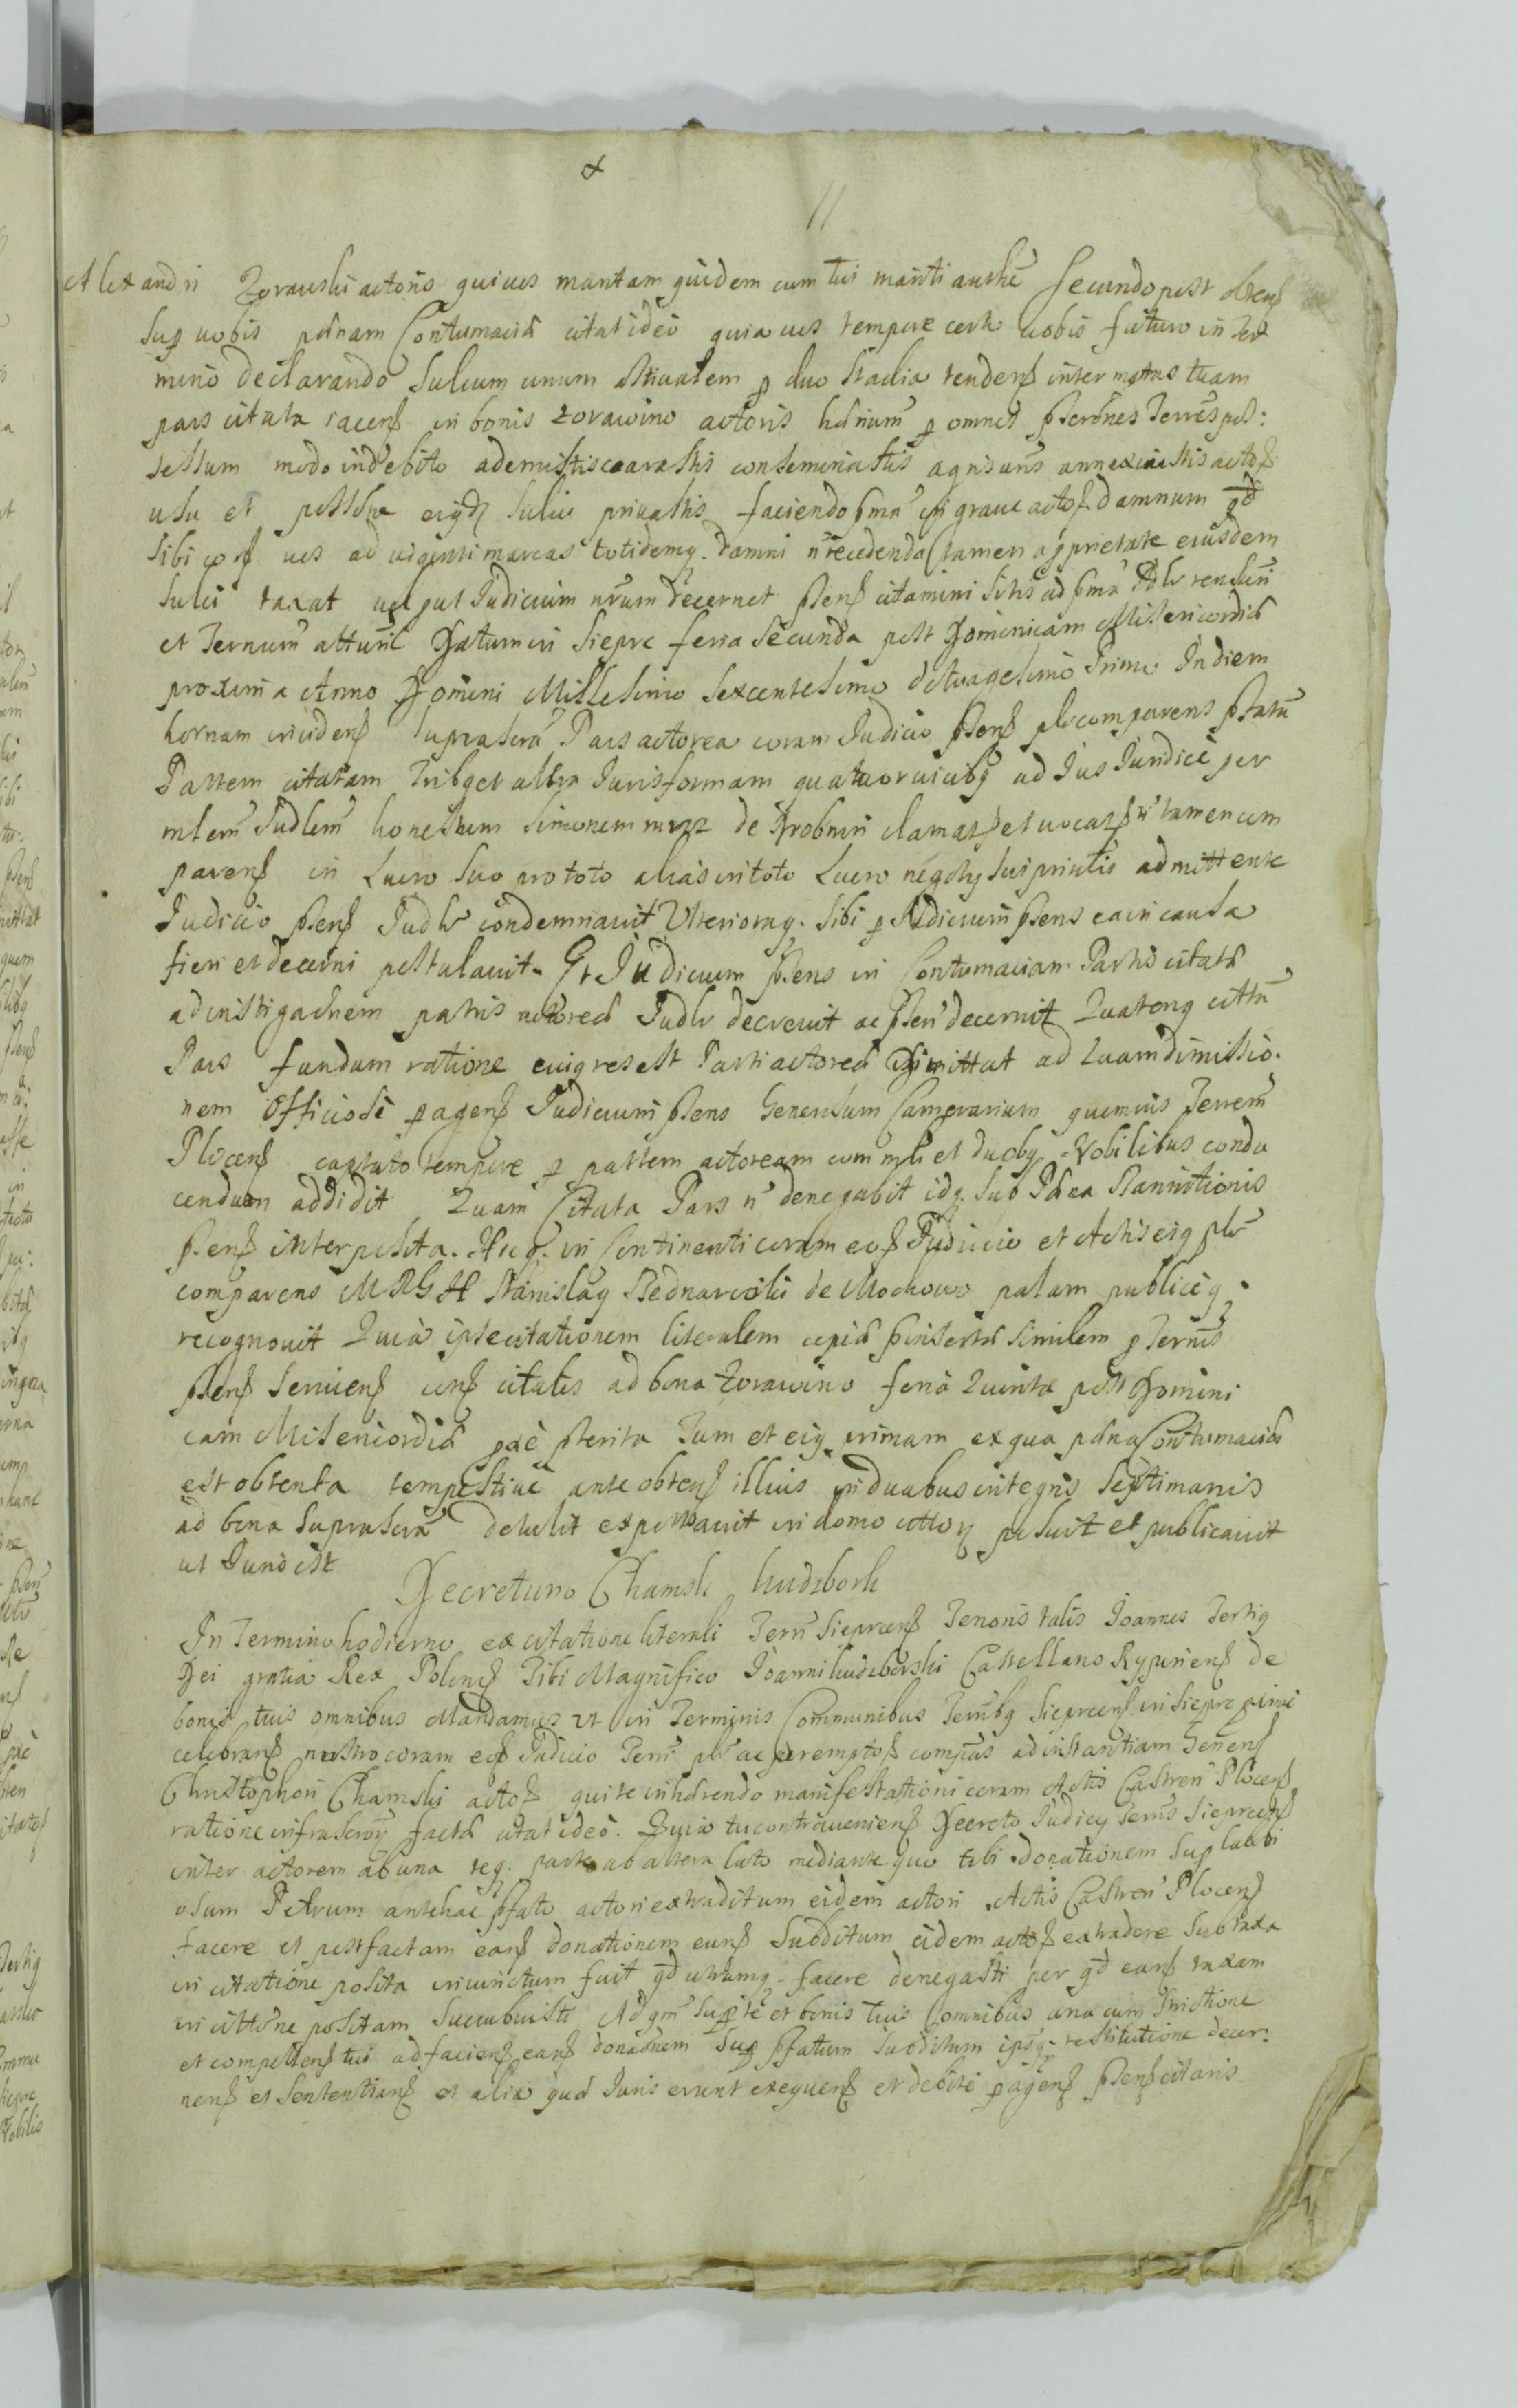 11
Alexandri Zorawski actoris qui vos maritam quidem cum tui mariti authē secundo post obten
sup vobis pænam Contumaciæ citat ideo quia vos tempore certo vobis futuro in Ter
mino declarando sulcum unum Stivalem p duo Stadia tenden inter metas tuam
pars citata iacen in bonis Zorawino actoris hdrium p omnes pos:
sessum modo indebito ademistis coarastis conseminastis agris vris annexuistis
usu et possne eiq sulci privastis faciendo pma in grave damnum qd
sibi vos ad viginti marcas totidemq. damni n recedendo tamen a pprietate eiusdem
sulci taxat vel put Judicium nrum decernet pten citamini sitis ad pma Pblr
et Ternum Datum in Siepre feria Secunda post Dominicam Misericordiæ
proxima Anno Domini Millesimo Sexcentesimo Octuagesimo Primo In diem
hornam inciden suprascra Pars actorea coram Judicio pten plr comparens pfatā
Partem citatam Tribq et altra Juris formam quatuor vicibq ad Jus Juridice per
mlem Judlem honestum Simonem de Drobnin clamat et vocat n tamen com
paren in Lucro suo pro toto alias in toto Lucro negoty sui privatis admittente
Judicio pten Judlr condemnavit Ulteriorq. sibi p Judicium ptens ea in causa
fieri et decerni postulavit. Et Judicium ptens in Contumaciam Partis citatæ
ad instigaonem partis actoreæ Judlr decrevit ac pten decernit Quatenq citta
Pars fundum ratione cuiq res est Parti actoreæ Dimittat ad Quam dimissio.
nem Officiose pagen Judicium ptens Generosum Camerarium quemvis Terrem
Plocen captato tempore p partem actoream cum mli et duobq Nobilibus condu
cendum addidit Quam Citata Pars n denegabit idq. sub Pæna Bannitionis
pten interposita. Hucq. in Continenti coram eod Judicio et Actis eiq plr
comparens M R G H Stanislaq Bednarski de Mochowo palam publiceq.
recognovit Quia ipse citationem literalem copiæ pinsertæ similem p Ternis
pten Servien citatis ad bona Zorawino feria Quinta post Domini
cam Misericordiæ pxe pterita Tum et eiq primam ex qua pæna Contumaciæ
est obtenta tempestive ante obten illius in duabus integris Septimanis
ad bona Suprascra detulit exportavit in domo posuit et publicavit
ut Juris est
Decretum Chamski Kuczborski
In Termino hodierno ex citatione literali Terri Sieprcen Tenoris talis Joannes Tertiq
Dei gratia Rex Polon Tibi Magnifico Joanni Kuczborski Castellano Rypinen de
bonis tuis omnibus Mandamus ut in Terminis Communibus Terribq Sieprcen in Siepre pxime
celebran nostro coram eod Judicio Terri plr ac peremptor compas ad instantiam Genen
Christophori Chamski actor qui te inhærendo manifestationi coram Actis Castren Plocen
ratione infrascrory factæ citat ideo. Quia tu contravenien Decreto Judicy Terris Sieprcen
inter actorem ab una teq. parte ab altera lato mediante quo tibi donationem sup labori
osum Petrum antehac pfato actori extraditum eidem actori Actis Castren Plocen
facere et post factam ean donationem eun Subditum eidem actor extradere sub taxa
in citatione posita iniunctum fuit qd utrumq. facere denegasti per qd ean taxam
in cittone positam succubuisti Ad qm te et bonis tuis omnibus una cum
et compellen tui ad facien ean donaonem sup pfatum Subditum restitutione decer.
nen et sententian et alia quæ Juris erunt exequen et debite pagen pten citaris